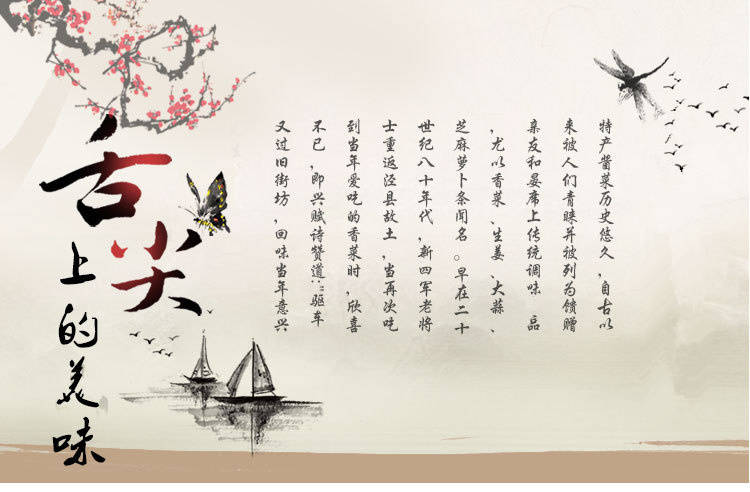 舌尖
上的美味
特产酱菜历史悠久,自古以
来被人们青睐并被列为馈赠
亲友和宴席上传统调味 品
,尤以香菜、生姜、大蒜、
芝麻萝卜条闻名。早在二十
世纪八十年代,新四军老将
士重返泾县故土,当再次吃
到当年爱吃的香菜时,欣喜
不已,即兴赋诗赞道:"驱车
又过旧街坊,回味当年意兴